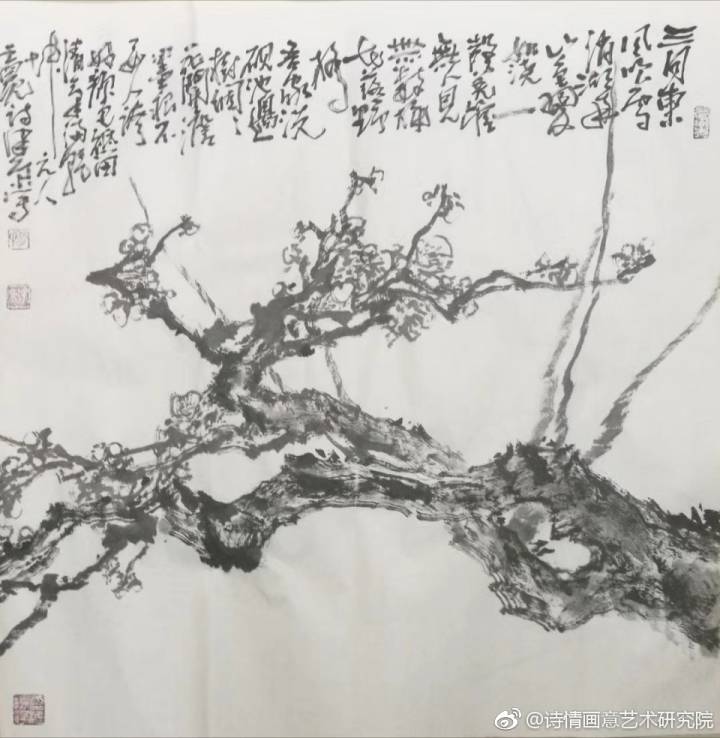 三月東
風吹雪
消湖南
山色翠
如澆一
聲羌管
無人見
無數梅
花落野
橋
吾家洗
硯池
樹個々
花開澹
墨痕不
要人誇
好顏色只留
清氣滿乾
坤 元人
王冕詩 寫
@诗情画意艺术研究院